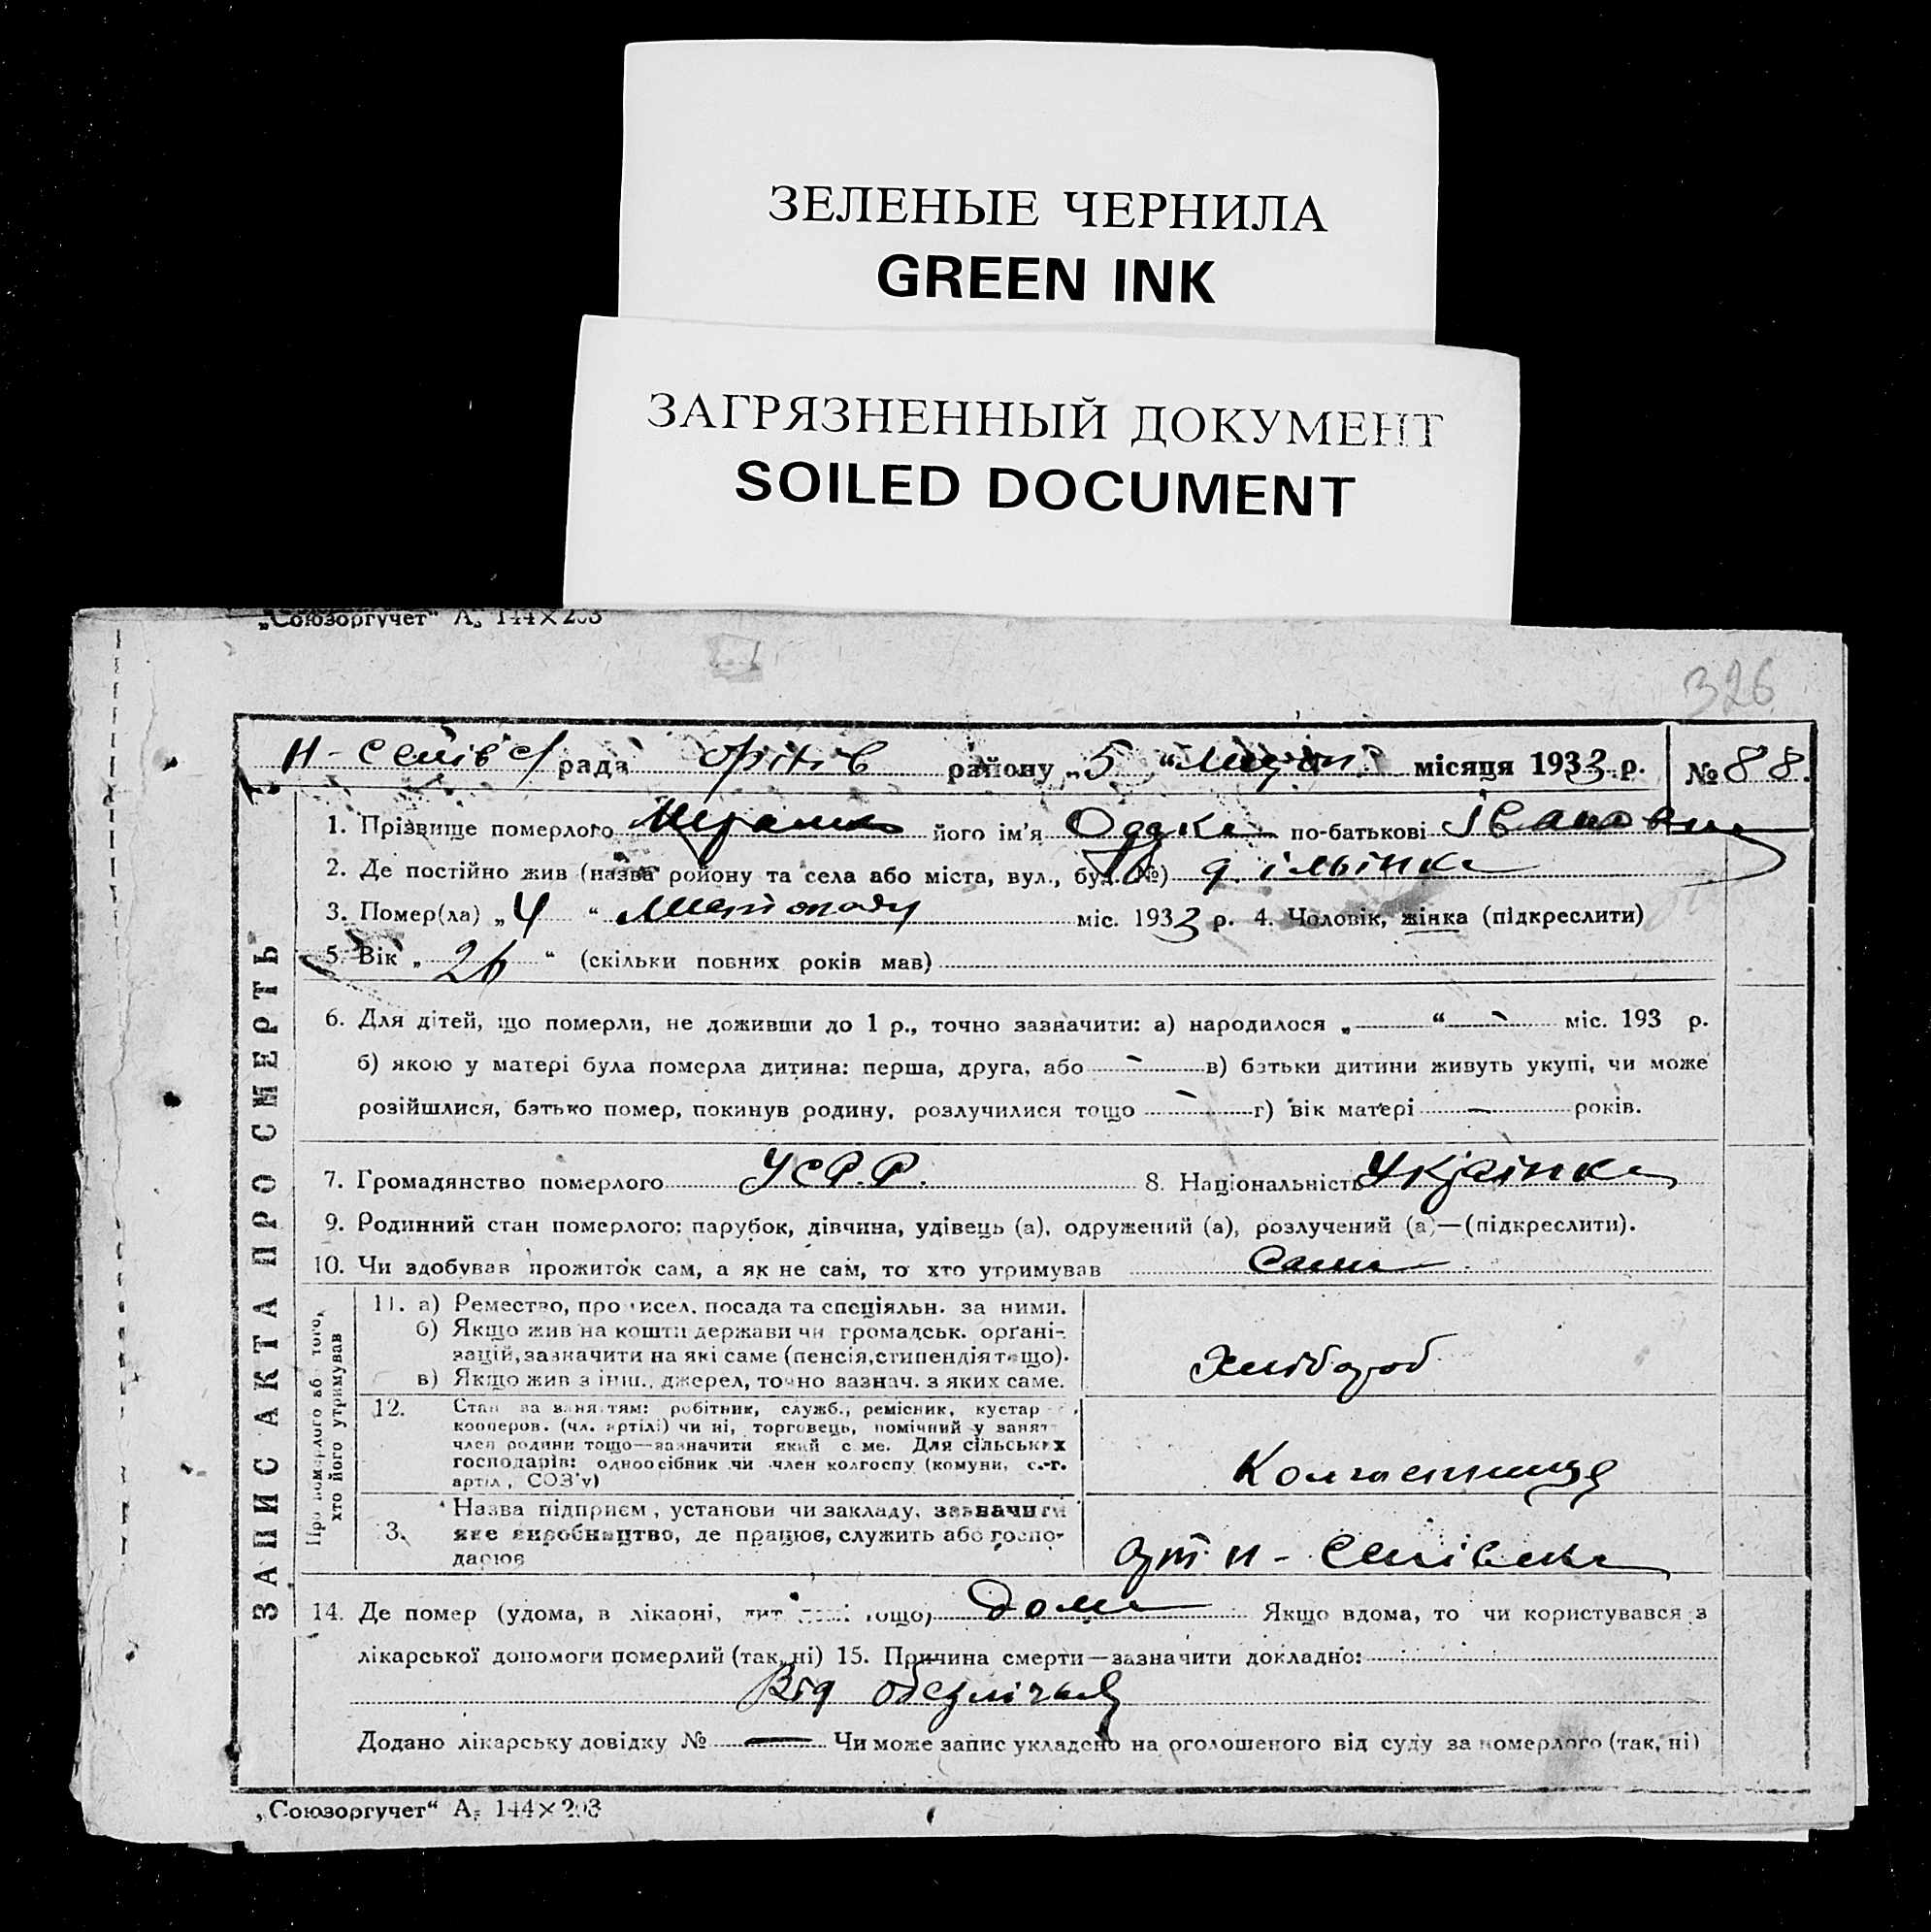 ЗЕЛЕНЫЕ ЧЕРНИЛА
GREEN INK
ЗАГРЯЗНЕННЫЙ ДОКУМЕНТ
SOILED DOCUMENT
„Союзоргучет“ А. 144×203
326
рада району „5“ місяця 1933 р. № 88.
1. Прізвище померлого його ім'я по-батькові
2. Де постійно жив (назва ройону та села або міста, вул., буд. №)
3. Помер(ла) „4“ міс. 1933 р. 4. Чоловік, жінка (підкреслити)
5. Вік „26“ (скільки повних років мав)
6. Для дітей, що померли, не доживши до 1 р., точно зазначити: а) народилося „ “ - міс. 193 р.
б) якою у матері була померла дитина: перша, друга, або - в) батьки дитини живуть укупі, чи може
розійшлися, батько помер, покинув родину, розлучилися тощо - г) вік матері - років.
7. Громадянство померлого УСР.Р. 8. Національність Українка
9. Родинний стан померлого: парубок, дівчина, удівець (а), одружений (а), розлучений (а)—(підкреслити).
10. Чи здобував прожиток сам, а як не сам, то хто утримував Сама
ЗАПИС АКТА ПРО СМЕРТЬ
Про померлого або того,
хто його утримував
11. а) Ремество, про посада та спеціяльн. за ними.
б) Якщо жив на кошти держави чи громадськ. орґані-
зацій, зазначити на які саме (пенсія, стипендія тощо).
в) Якщо жив з інш. джерел, точно зазнач. з яких саме.
Хлібороб
12. Стан за заняттям: робітник, служб., ремісник, кустар
кооперов. (чл. артілі) чи ні, торговець, помічний у занят.
член родини тощо—зазначити який саме. Для сільських
господарів: одноосібник чи член колгоспу (комуни, с.-г.
артіл., СОЗ'у)
13. Назва підприєм., установи чи закладу, зазначити
яке виробництво, де працює, служить або госпо-
дарює
14. Де помер (удома, в лікарні, тощо) Дома Якщо вдома, то чи користувався з
лікарської допомоги померлий (так, ні) 15. Причина смерти—зазначити докладно:
Від
Додано лікарську довідку № — Чи може запис укладено на оголошеного від суду за померлого (так, ні)
„Союзоргучет“ А. 144×203